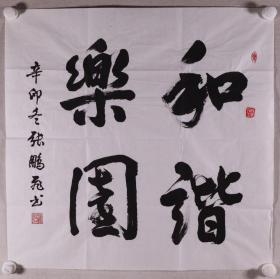 和諧
樂園
辛卯冬張鵬飛书